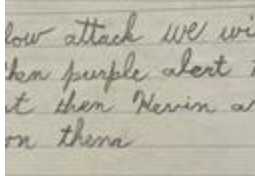 low attack we wi
then purple alert
t then Kevin a
on them